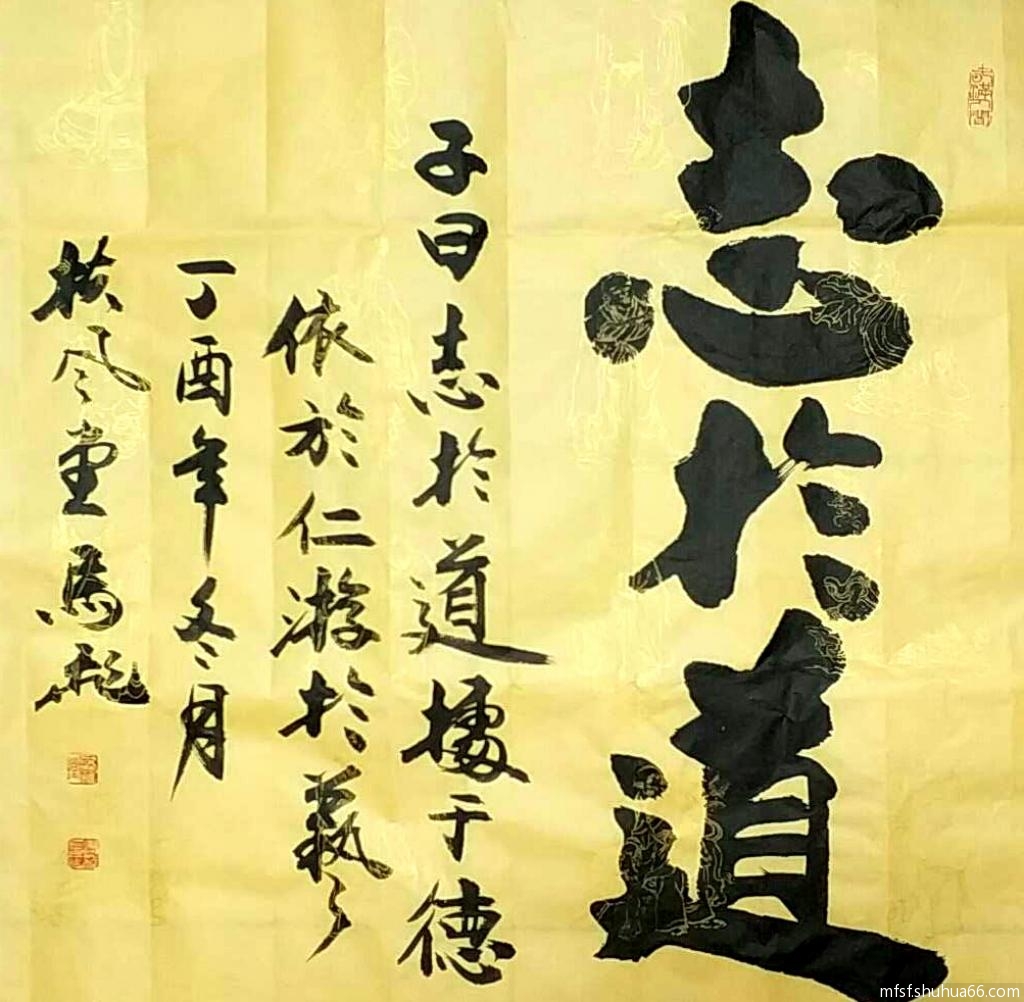 志於道
子曰志於道據于德
依於仁游於藝
丁酉年冬月
扶风堂馬
mfsf.shuhua66.com